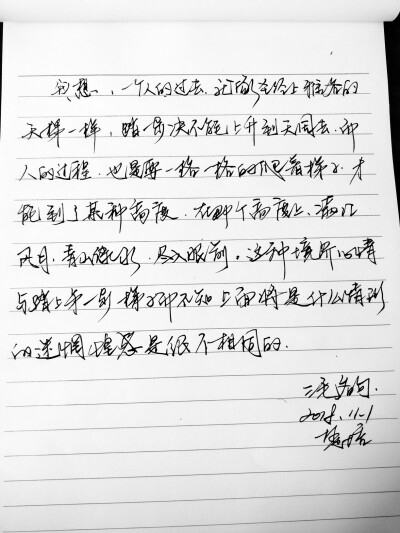 我想、一个人的过去,就像圣经上雅各的
天梯一样,踏一步决不能上升到天国去.而
人的过程.也是要一格一格的爬着梯子.才
能到了某种高度.在那个高度上、满江
风月.青山绿水.尽入眼前.这种境界心情
与踏上第一步梯子而不知上面将是什么情形
的迷惘惶惑是很不相同的.
三毛名句.
2018.11.1